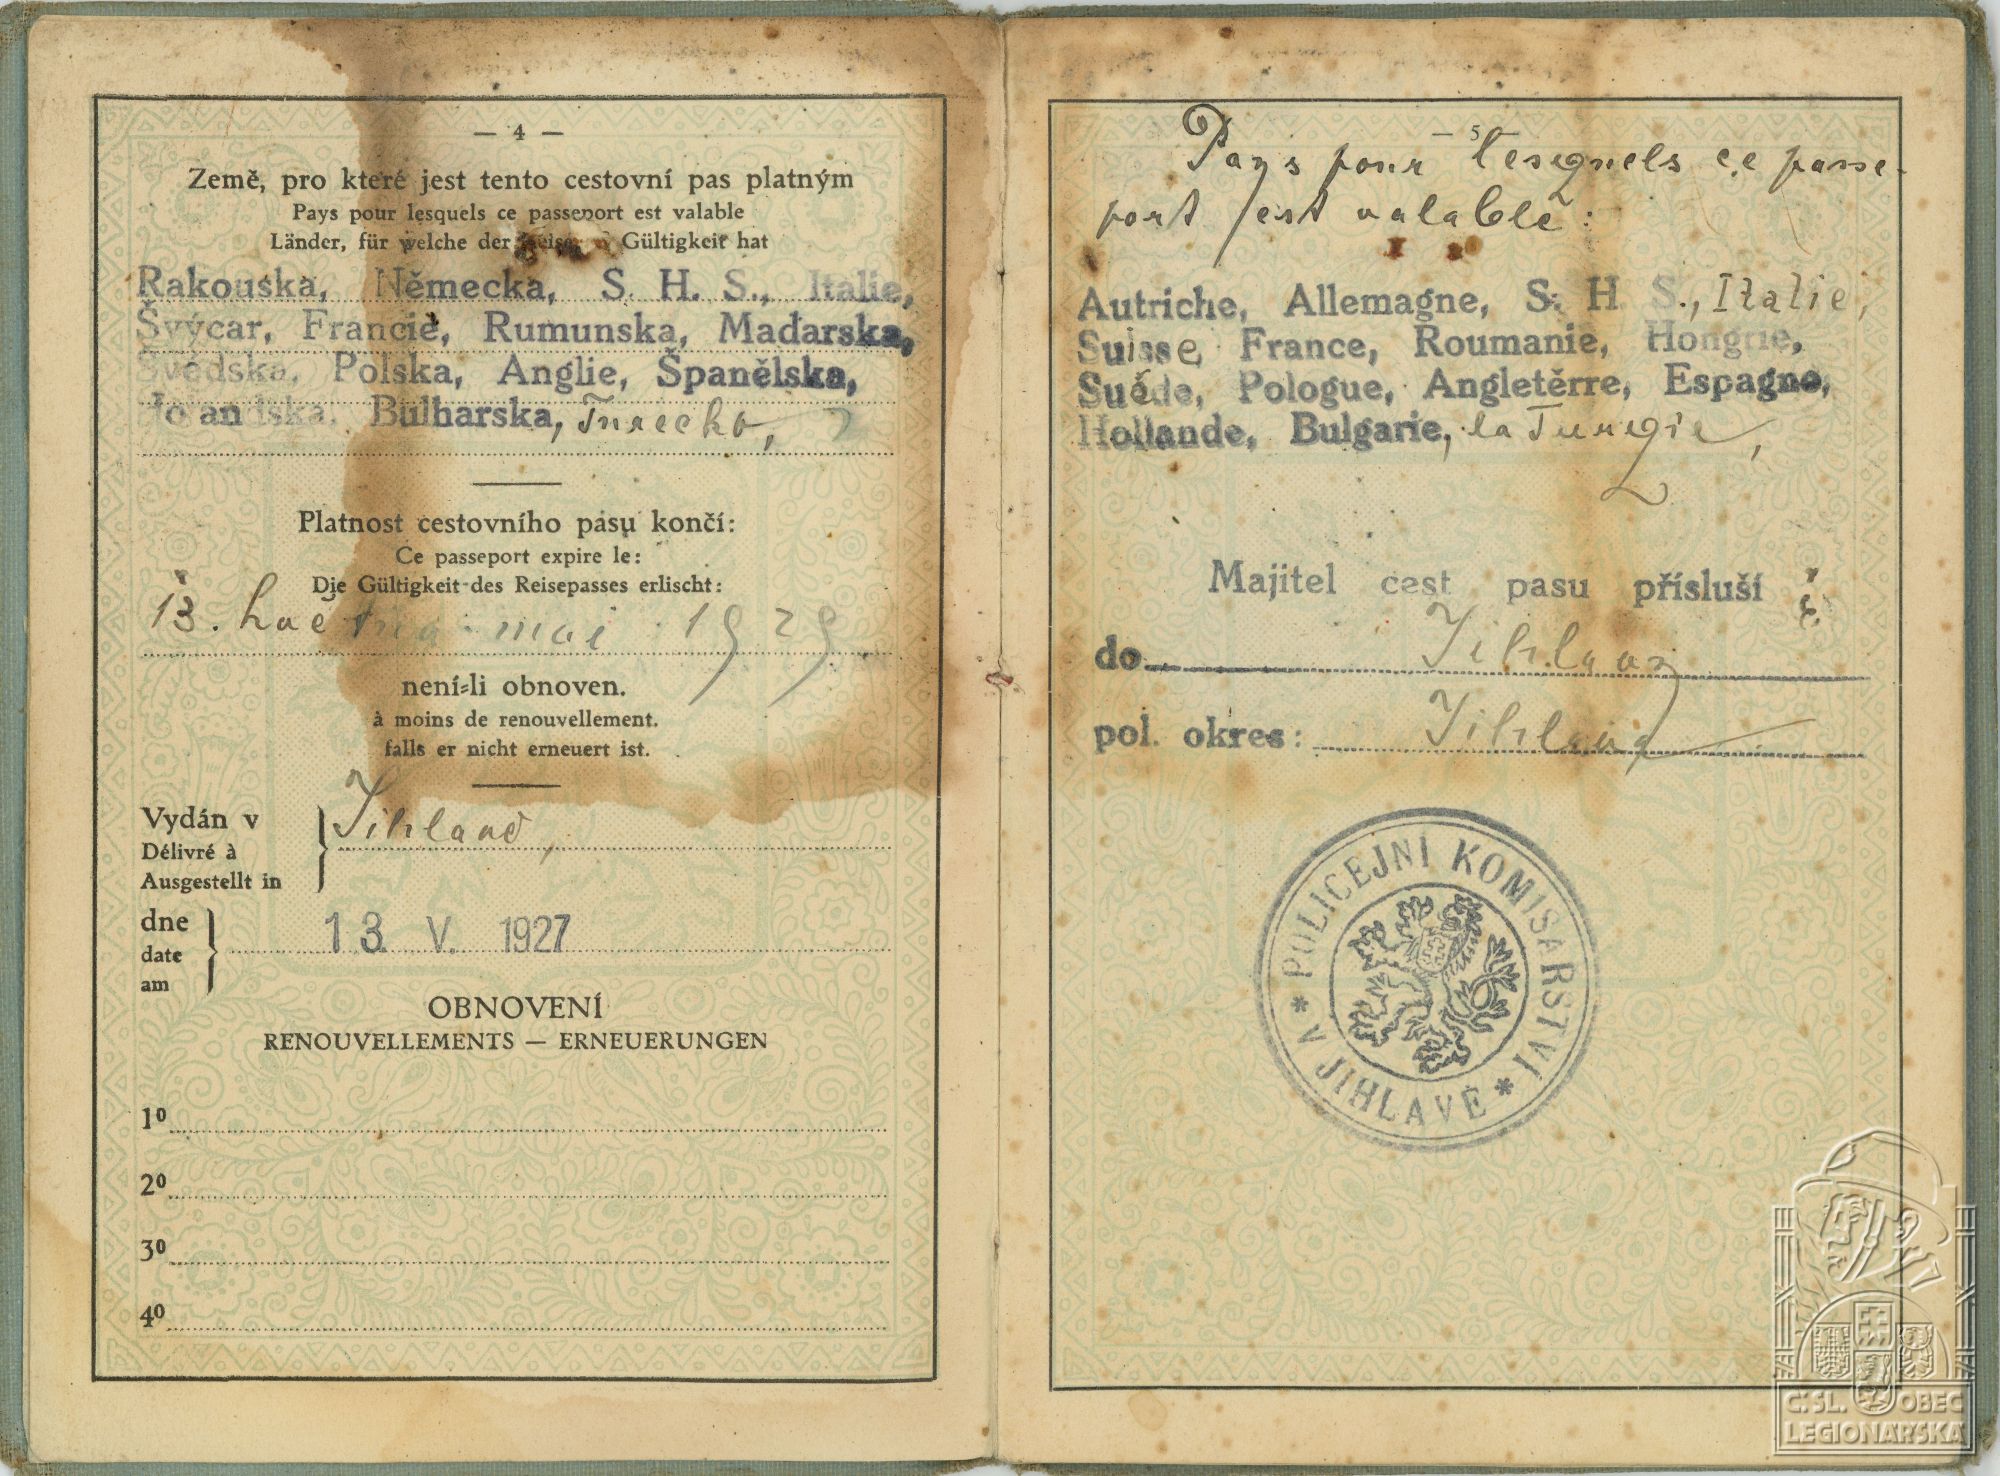 — 4 —
Země, pro které jest tento cestovní pas platným
Pays pour lesquels ce passeport est valable
Länder, für welche der Gültigkeit hat
Rakouska, Německa, S. H. S., Italie,
Švýcar, Francie, Rumunska, Maďarska,
Švédska, Polska, Anglie, Španělska,
Holandska, Bulharska, Turecko,
Platnost cestovního pasu končí:
Ce passeport expire le:
Die Gültigkeit des Reisepasses erlischt:
13. května - mai 1929
není-li obnoven.
à moins de renouvellement.
falls er nicht erneuert ist.
Vydán v
Délivré à
Ausgestellt in
Jihlavě,
dne
date
am
13. V. 1927
OBNOVENÍ
RENOUVELLEMENTS — ERNEUERUNGEN
1º
2º
3º
4º
— 5 —
Pays pour lesquels ce passe-
port est valable:
Autriche, Allemagne, S. H. S., Italie,
Suisse, France, Roumanie, Hongrie,
Suéde, Pologue, Angletěrre, Espagne,
Hollande, Bulgarie, la Turqie,
Majitel cest pasu přísluší
do Jihlavy
pol. okres: Jihlava
* POLICEJNÍ KOMISAŘSTVÍ *
V JIHLAVĚ
Č. SL. OBEC
LEGIONÁŘSKÁ